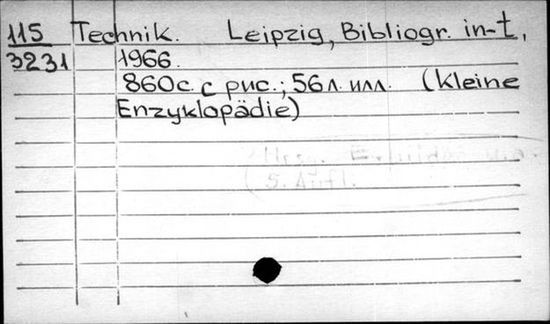 115 Technik. Leipzig, Bibliogr. in-t,
3231 1966.
860с. с рис.; 56л. илл. (Kleine
Enzyklopädie)
(5. Aufl.